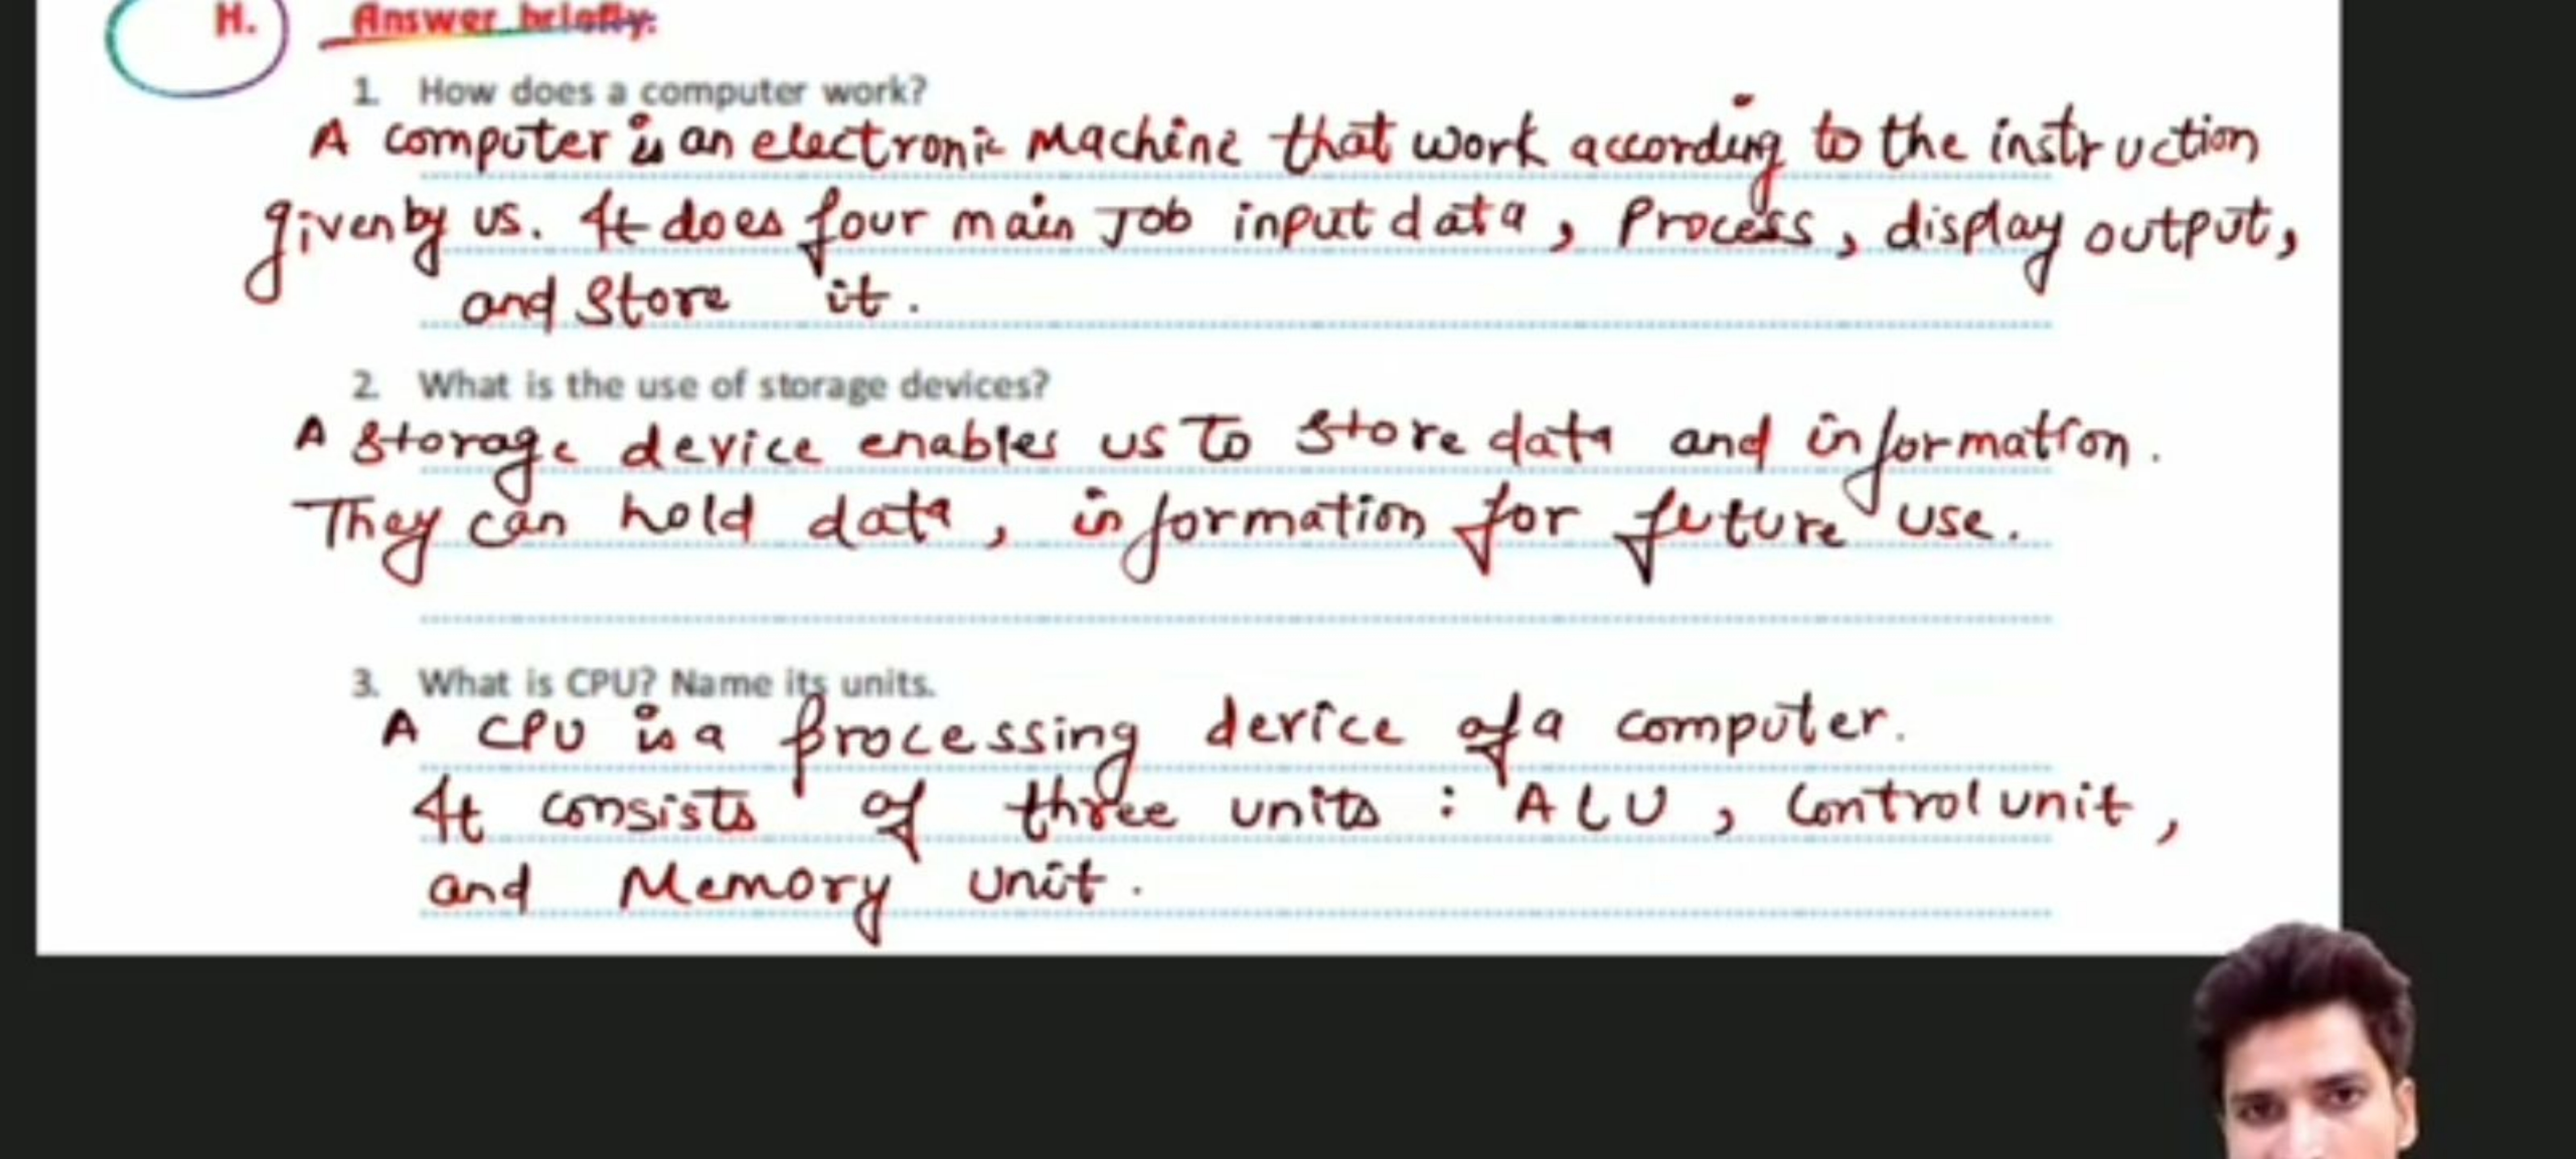 H. Answer briefly:
1. How does a computer work?
A computer is an electronic Machine that work according to the instruction
given by us. It does four main Job input data, Process, display output,
and Store it.
2. What is the use of storage devices?
A Storage device enables us to Store data and information.
They can hold data, information for future use.
3. What is CPU? Name its units.
A CPU is a Processing device of a computer.
It consists of three units : ALU, Control unit,
and Memory unit.